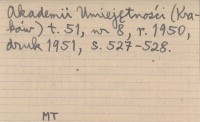 Akademii Umiejętności (Kra-
ków) t. 51, nr 8, r. 1950,
druk 1951, s. 527-528.
MT